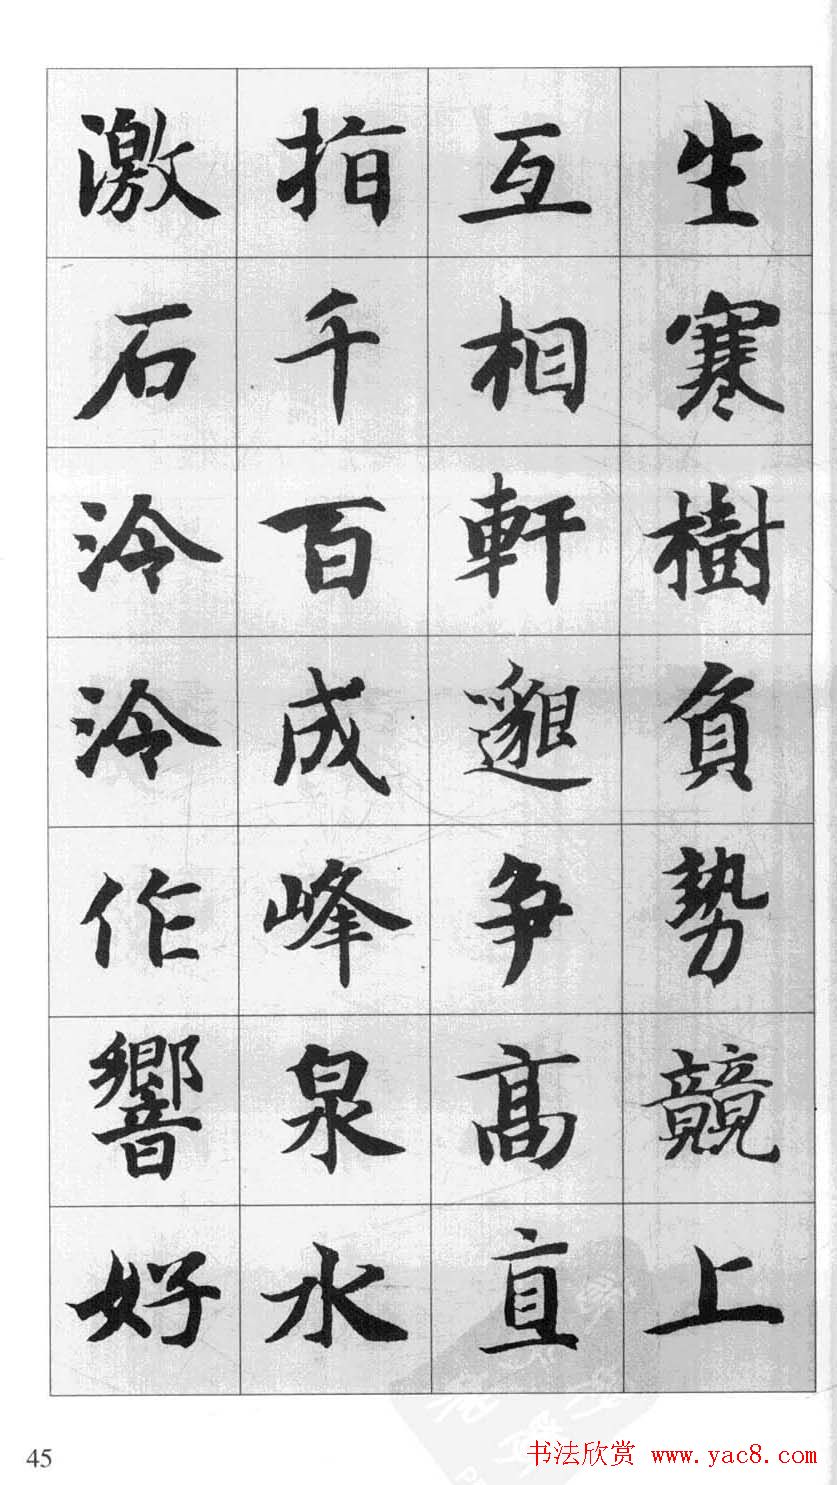 生寒樹負勢競上
互相軒邈争高直
指千百成峰泉水
激石泠泠作響好
45
书法欣赏 www.yac8.com